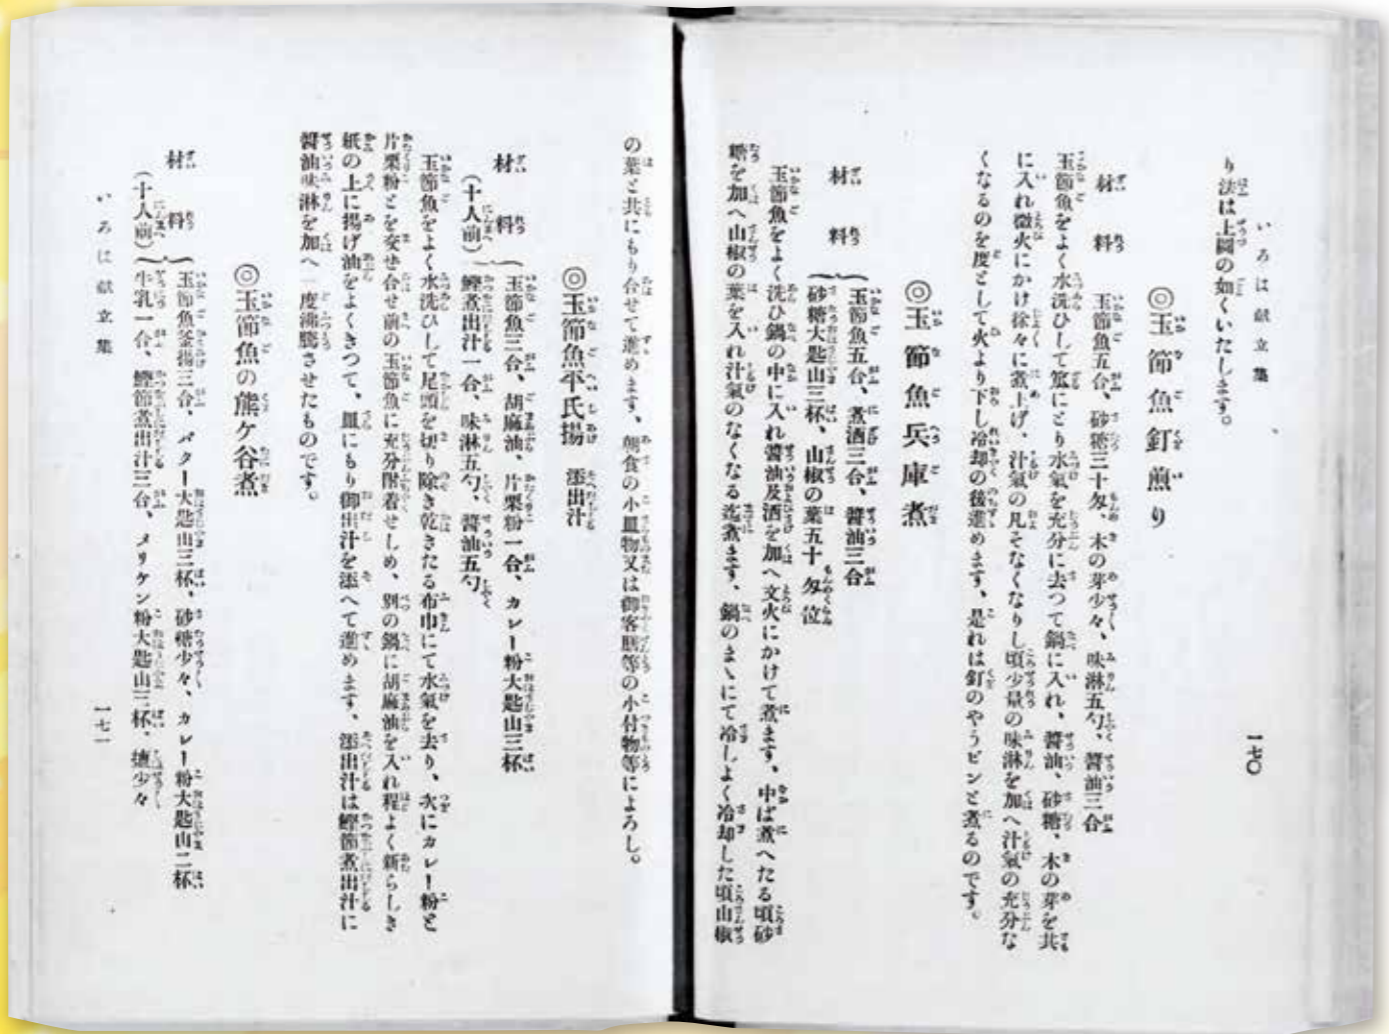 いろは献立集
一七〇
り法は上圖の如くいたします。
◎玉節魚釘煎り
材料 玉節魚五合、砂糖三十匁、木の芽少々、味淋五勺、醬油三合
玉節魚をよく水洗ひして笊にとり水氣を充分に去つて鍋に入れ、醬油、砂糖、木の芽を共
に入れ微火にかけ徐々に煮上げ、汁氣の凡そなくなりし頃少量の味淋を加へ汁氣の充分な
くなるのを度として火より下し冷却の後進めます、是れは釘のやうピンと煮るのです。
◎玉節魚兵庫煮
材料
玉節魚五合、煮酒三合、醬油三合
砂糖大匙山三杯、山椒の葉五十匁位
玉節魚をよく洗ひ鍋の中に入れ醬油及酒を加へ文火にかけて煮ます、中ば煮へたる頃砂
糖を加へ山椒の葉を入れ汁氣のなくなる迄煮ます、鍋のまゝにて冷しよく冷却した頃山椒
の葉と共にもり合せて進めます、朝食の小皿物又は御客膳等の小付物等によろし。
◎玉節魚平氏揚 添出汁
材料
(十人前)
玉節魚三合、胡麻油、片栗粉一合、カレー粉大匙山三杯
鰹煮出汁一合、味淋五勺、醬油五勺
玉節魚をよく水洗ひして足頭を切り除き乾きたる布巾にて水氣を去り、次にカレー粉と
片栗粉とを交ぜ合せ前の玉節魚に充分附着せしめ、別の鍋に胡麻油を入れ程よく新らしき
紙の上に揚げ油をよくきつて、皿にもり御出汁を添へて進めます、添出汁は鰹節煮出汁に
醬油味淋を加へ一度沸騰させたものです。
◎玉節魚の熊ケ谷煮
材料
(十人前)
玉節魚釜揚三合、バター大匙山三杯、砂糖少々、カレー粉大匙山二杯
牛乳一合、鰹節煮出汁三合、メリケン粉大匙山三杯、塩少々
いろは献立集
一七一